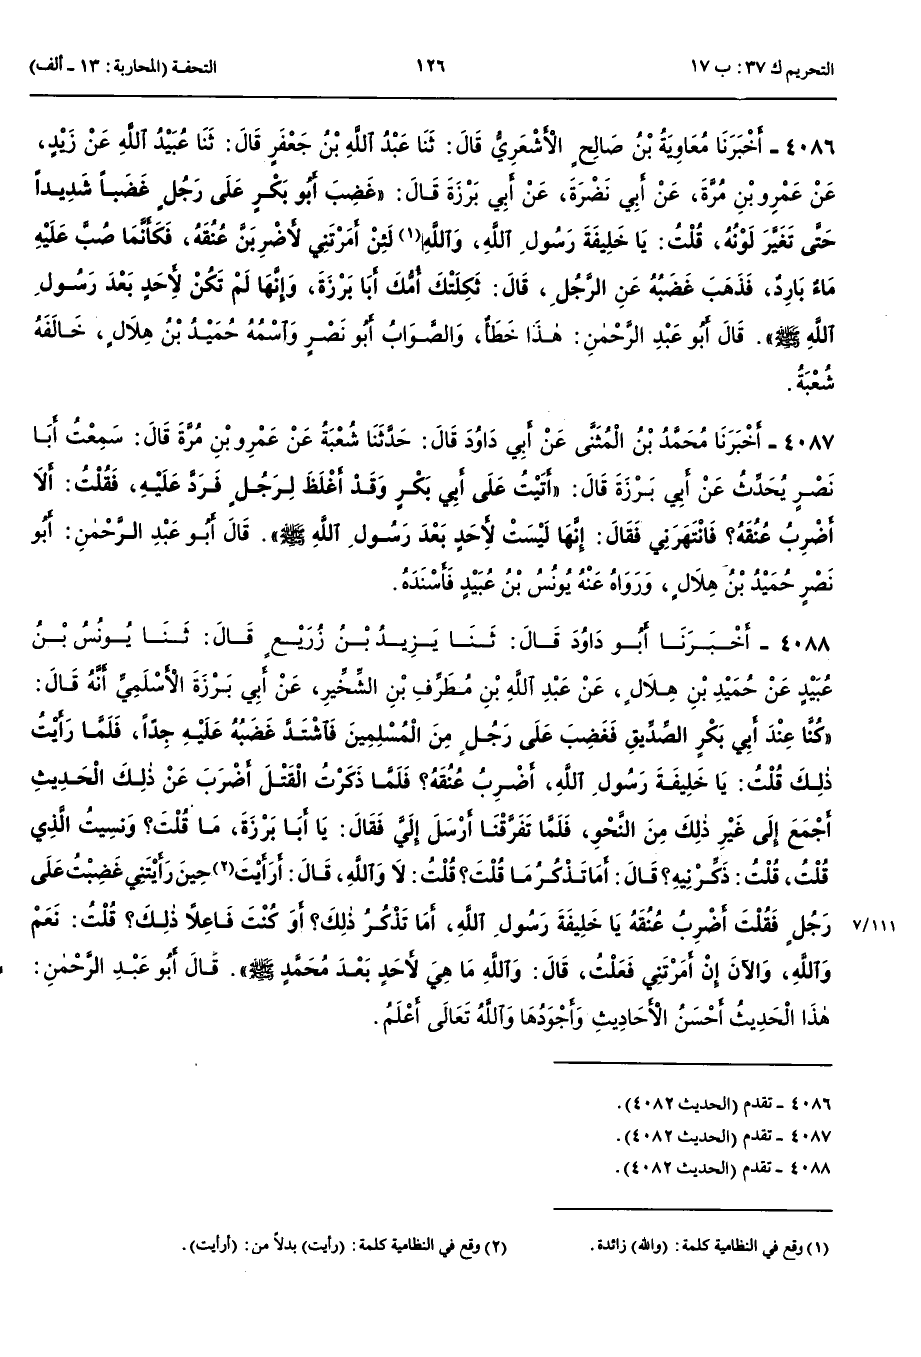 التحريم ك ٣٧: ب ١٧
١٢٦
التحفة (المحاربة: ١٣ - ألف)
٤٠٨٦ - أَخْبَرَنَا مُعَاوِيَةُ بْنُ صَالِحٍ الْأَشْعَرِيُّ قَالَ: ثَنَا عَبْدُ اللَّهِ بْنُ جَعْفَرٍ قَالَ: ثَنَا عُبَيْدُ اللَّهِ عَنْ زَيْدٍ،
عَنْ عَمْرِو بْنِ مُرَّةَ، عَنْ أَبِي نَضْرَةَ، عَنْ أَبِي بَرْزَةَ قَالَ: «غَضِبَ أَبُو بَكْرٍ عَلَى رَجُلٍ غَضَباً شَدِيداً
حَتَّى تَغَيَّرَ لَوْنُهُ، قُلْتُ: يَا خَلِيفَةَ رَسُولِ اللَّهِ، وَاللَّهِ(١) لَئِنْ أَمَرْتَنِي لَأَضْرِبَنَّ عُنُقَهُ، فَكَأَنَّمَا صُبَّ عَلَيْهِ
مَاءٌ بَارِدٌ، فَذَهَبَ غَضَبُهُ عَنِ الرَّجُلِ، قَالَ: ثَكِلَتْكَ أُمُّكَ أَبَا بَرْزَةَ، وَإِنَّهَا لَمْ تَكُنْ لِأَحَدٍ بَعْدَ رَسُولِ
اللَّهِ ﷺ». قَالَ أَبُو عَبْدِ الرَّحْمٰنِ: هٰذَا خَطَأٌ، وَالصَّوَابُ أَبُو نَصْرٍ وَاسْمُهُ حُمَيْدُ بْنُ هِلَالٍ، خَالَفَهُ
شُعْبَةُ.
٤٠٨٧ - أَخْبَرَنَا مُحَمَّدُ بْنُ الْمُثَنَّى عَنْ أَبِي دَاوُدَ قَالَ: حَدَّثَنَا شُعْبَةُ عَنْ عَمْرِو بْنِ مُرَّةَ قَالَ: سَمِعْتُ أَبَا
نَصْرٍ يُحَدِّثُ عَنْ أَبِي بَرْزَةَ قَالَ: «أَتَيْتُ عَلَى أَبِي بَكْرٍ وَقَدْ أَغْلَظَ لِرَجُلٍ فَرَدَّ عَلَيْهِ، فَقُلْتُ: أَلَا
أَضْرِبُ عُنُقَهُ؟ فَانْتَهَرَنِي فَقَالَ: إِنَّهَا لَيْسَتْ لِأَحَدٍ بَعْدَ رَسُولِ اللَّهِ ﷺ». قَالَ أَبُو عَبْدِ الرَّحْمٰنِ: أَبُو
نَصْرٍ حُمَيْدُ بْنُ هِلَالٍ، وَرَوَاهُ عَنْهُ يُونُسُ بْنُ عُبَيْدٍ فَأَسْنَدَهُ.
٤٠٨٨ - أَخْبَرَنَا أَبُو دَاوُدَ قَالَ: ثَنَا يَزِيدُ بْنُ زُرَيْعٍ قَالَ: ثَنَا يُونُسُ بْنُ
عُبَيْدٍ عَنْ حُمَيْدِ بْنِ هِلَالٍ، عَنْ عَبْدِ اللَّهِ بْنِ مُطَرِّفِ بْنِ الشِّخِّيرِ، عَنْ أَبِي بَرْزَةَ الْأَسْلَمِيِّ أَنَّهُ قَالَ:
«كُنَّا عِنْدَ أَبِي بَكْرٍ الصِّدِّيقِ فَغَضِبَ عَلَى رَجُلٍ مِنَ الْمُسْلِمِينَ فَاشْتَدَّ غَضَبُهُ عَلَيْهِ جِدّاً، فَلَمَّا رَأَيْتُ
ذٰلِكَ قُلْتُ: يَا خَلِيفَةَ رَسُولِ اللَّهِ، أَضْرِبُ عُنُقَهُ؟ فَلَمَّا ذَكَرْتُ الْقَتْلَ أَضْرَبَ عَنْ ذٰلِكَ الْحَدِيثِ
أَجْمَعَ إِلَى غَيْرِ ذٰلِكَ مِنَ النَّحْوِ، فَلَمَّا تَفَرَّقْنَا أَرْسَلَ إِلَيَّ فَقَالَ: يَا أَبَا بَرْزَةَ، مَا قُلْتَ؟ وَنَسِيتُ الَّذِي
قُلْتُ، قُلْتُ: ذَكِّرْنِيهِ؟ قَالَ: أَمَا تَذْكُرُ مَا قُلْتَ؟ قُلْتُ: لَا وَاللَّهِ، قَالَ: أَرَأَيْتَ(٢) حِينَ رَأَيْتَنِي غَضِبْتُ عَلَى
رَجُلٍ فَقُلْتَ أَضْرِبُ عُنُقَهُ يَا خَلِيفَةَ رَسُولِ اللَّهِ، أَمَا تَذْكُرُ ذٰلِكَ؟ أَوَ كُنْتَ فَاعِلًا ذٰلِكَ؟ قُلْتُ: نَعَمْ
٧/١١١
وَاللَّهِ، وَالْآنَ إِنْ أَمَرْتَنِي فَعَلْتُ، قَالَ: وَاللَّهِ مَا هِيَ لِأَحَدٍ بَعْدَ مُحَمَّدٍ ﷺ». قَالَ أَبُو عَبْدِ الرَّحْمٰنِ:
هٰذَا الْحَدِيثُ أَحْسَنُ الْأَحَادِيثِ وَأَجْوَدُهَا وَاللَّهُ تَعَالَى أَعْلَمُ.
٤٠٨٦ - تقدم (الحديث ٤٠٨٢).
٤٠٨٧ - تقدم (الحديث ٤٠٨٢).
٤٠٨٨ - تقدم (الحديث ٤٠٨٢).
(١) وقع في النظامية كلمة: (والله) زائدة.
(٢) وقع في النظامية كلمة: (رأيت) بدلاً من: (أرأيت).